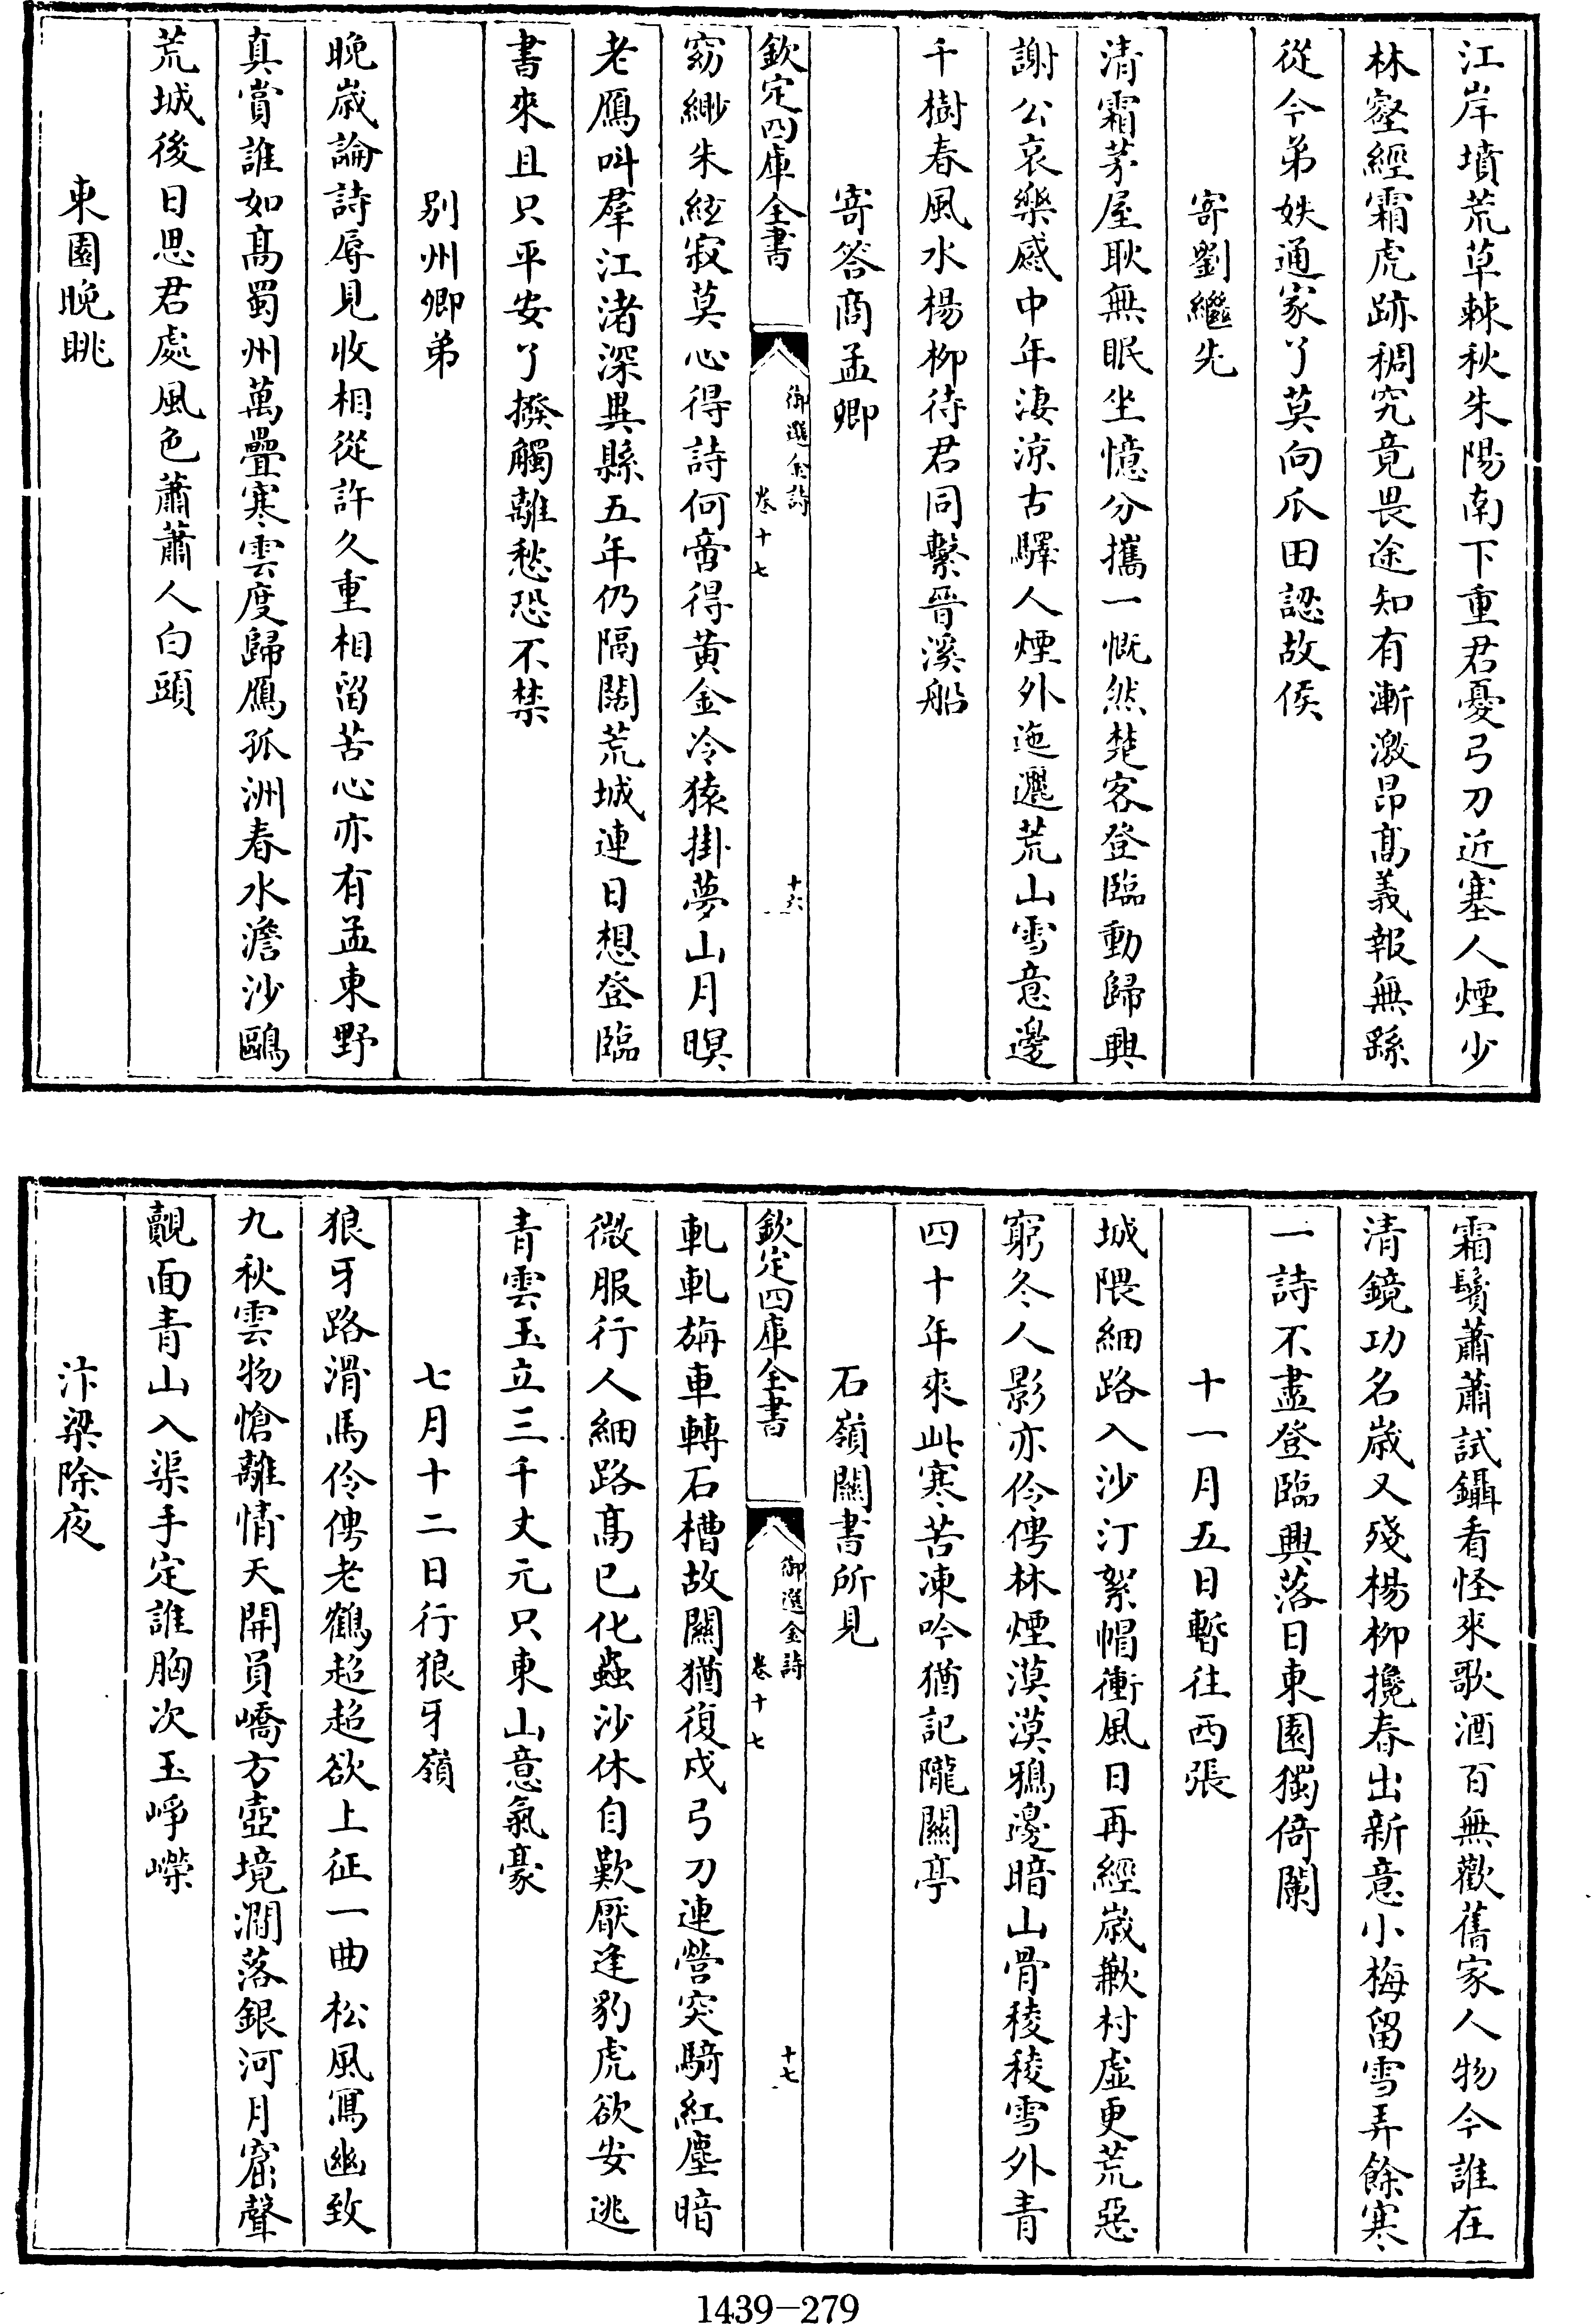 江岸墳荒草棘秋朱陽南下重君憂弓刀近塞人煙少
林壑經霜虎跡稠究竟畏途知有漸激昂髙義報無繇
從今弟姪通家了莫向瓜田認故侯
寄劉繼先
清霜茅屋耿無眠坐憶分攜一慨然楚客登臨動歸興
謝公哀樂感中年淒涼古驛人煙外迤邐荒山雪意邊
千樹春風水楊柳待君同繫晉溪船
寄答商孟卿
欽定四庫全書
御選金詩
卷十七
十六
窈緲朱絃寂莫心得詩何啻得黄金冷猿掛夢山月暝
老鴈叫羣江渚深異縣五年仍隔闊荒城連日想登臨
書來且只平安了撥觸離愁恐不禁
别州卿弟
晚嵗論詩辱見收相從許久重相留苦心亦有孟東野
真賞誰如髙蜀州萬疊寒雲度歸鴈孤洲春水澹沙鷗
荒城後日思君處風色蕭蕭人白頭
東園晚眺
霜鬢蕭蕭試鑷看怪來歌酒百無歡舊家人物今誰在
清鏡功名嵗又殘楊柳攙春出新意小梅留雪弄餘寒
一詩不盡登臨興落日東園獨倚闌
十一月五日暫往西張
城隈細路入沙汀絮帽衝風日再經嵗歉村虛更荒惡
窮冬人影亦伶俜林煙漠漠鴉邊暗山骨稜稜雪外青
四十年來此寒苦凍吟猶記隴關亭
石嶺關書所見
欽定四庫全書
御選金詩
卷十七
十七
軋軋旃車轉石槽故關猶復戍弓刀連營突騎紅塵暗
微服行人細路髙已化蟲沙休自歎厭逢豹虎欲安逃
青雲玉立三千丈元只東山意氣豪
七月十二日行狼牙嶺
狼牙路滑馬伶俜老鶴超超欲上征一曲松風寫幽致
九秋雲物愴離情天開員嶠方壺境澗落銀河月窟聲
覿面青山入渠手定誰胸次玉崢嶸
汴梁除夜
1439-279